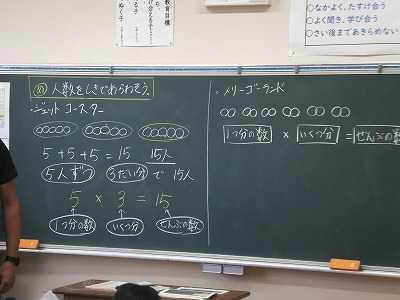 教育目標
なかよく、たすけ合う
よく聞き、学び合う
さい後まであきらめない
め 人数をしきであらわそう。
・ジェットコースター
5+5+5=15 15人
5人ずつ 3だい分 で 15人
5 × 3 = 15
1つ分の数 いくつ分 ぜんぶの数
・メリーゴーランド
1つ分の数 × いくつ分 = ぜんぶの数